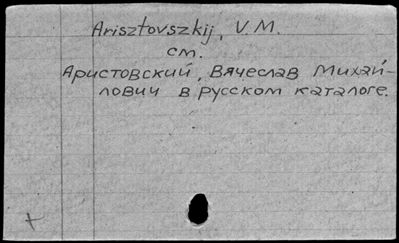 Arisztovszkij, V.M.
см.
Аристовский, Вячеслав Михай-
лович в русском каталоге.
+